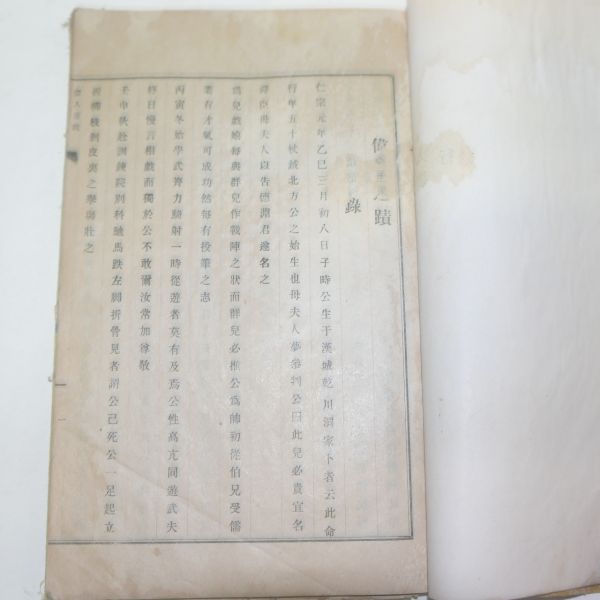 偉人事蹟
錄
仁宗元年乙巳三月初八日子時公生于漢城乾川洞家卜者云此命
行年五十杖鉞北方公之始生也母夫人夢參判公曰此兒必貴宜名
舜臣母夫人以告德淵君遂名之
爲兒戱嬉每與群兒作戰陣之狀而群兒必推公爲帥初從伯兄受儒
業有才氣可成功然每有投筆之志
丙寅冬始學武膂力騎射一時從遊者莫有及焉公性高亢同遊武夫
終日慢言相戱而獨於公不敢爾汝常加尊敬
壬申秋赴訓鍊院別科馳馬跌左脚折骨見者謂公已死公一足起立
折柳枝剝皮裹之擧場壯之
一